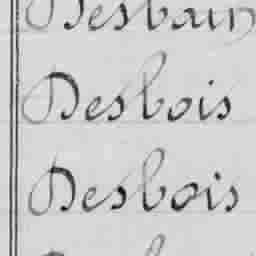 Desbain
Desbois
Desbois